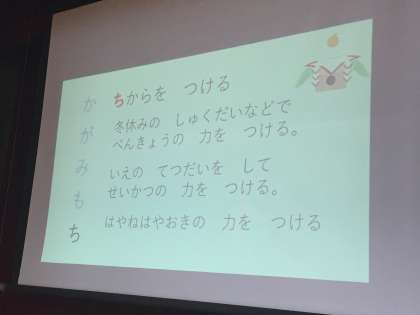 かがみもち
ちからを つける
冬休みの しゅくだいなどで
べんきょうの 力を つける。
いえの てつだいを して
せいかつの 力を つける。
はやねはやおきの 力を つける